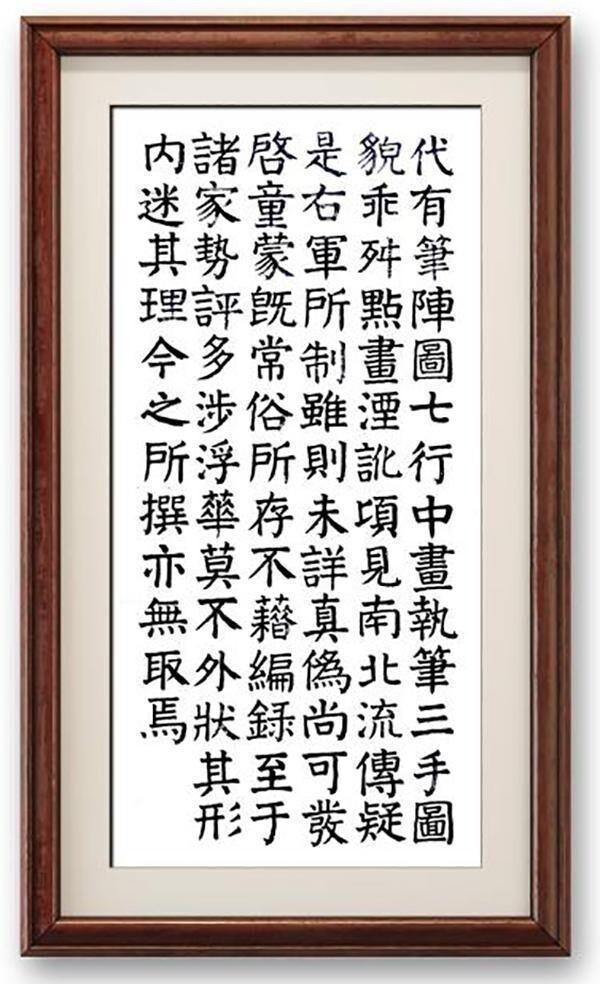 代有筆陣圖七行中畫執筆三手圖
貌乖舛點畫湮訛頃見南北流傳疑
是右軍所制雖則未詳真僞尚可發
啓童蒙旣常俗所存不藉編録至于
諸家勢評多涉浮華莫不外狀其形
内迷其理今之所撰亦無取焉